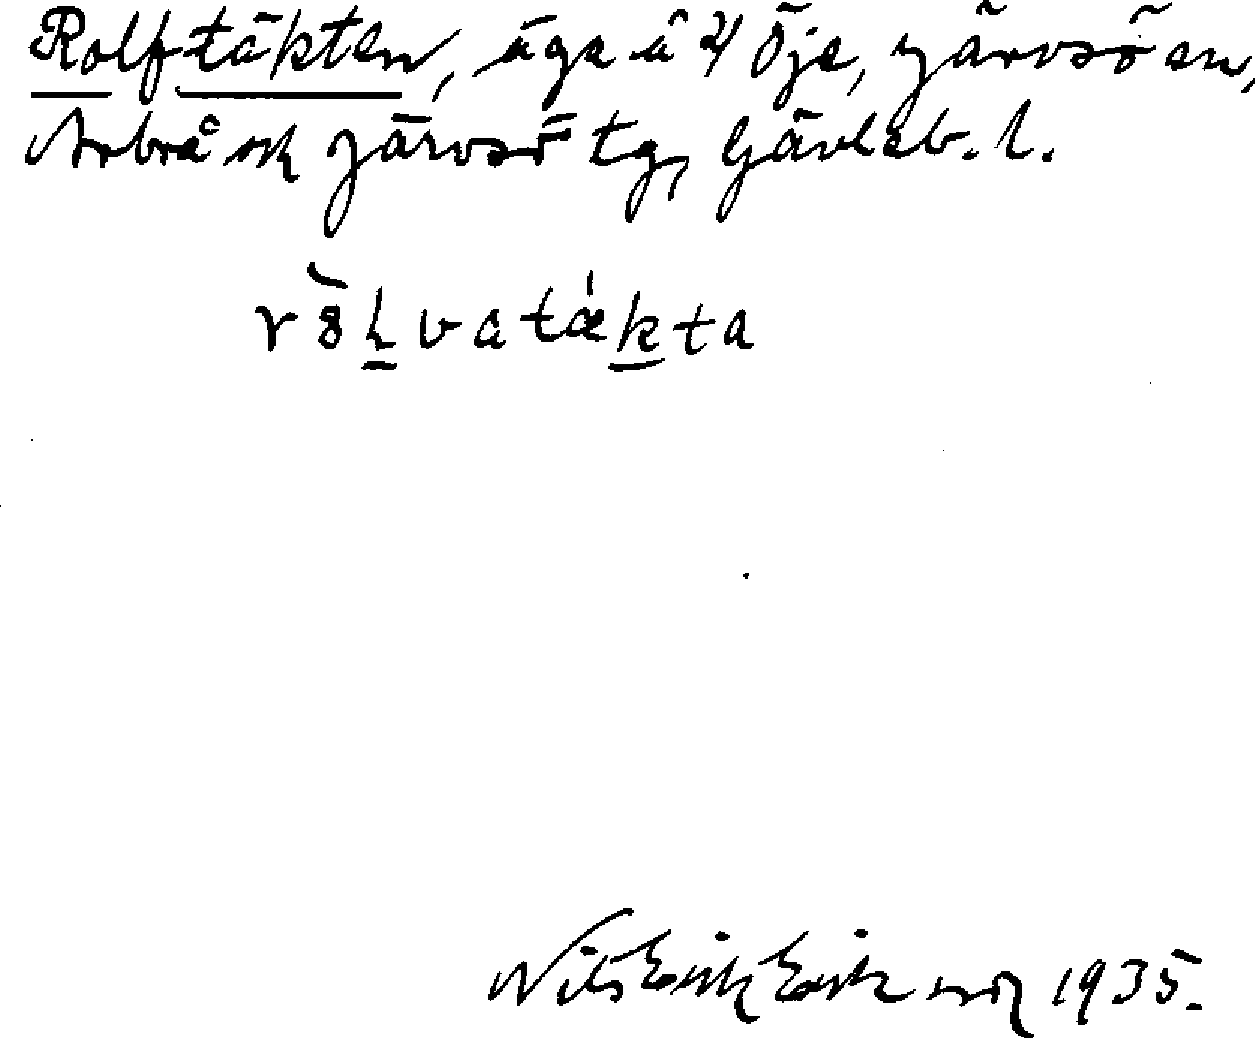 Rolftäkten, äga å 4 Öje, Järvsö sn,
Arbrå och Järvsö tg, Gävleb. l.
Nils Erik Eriksson 1935.